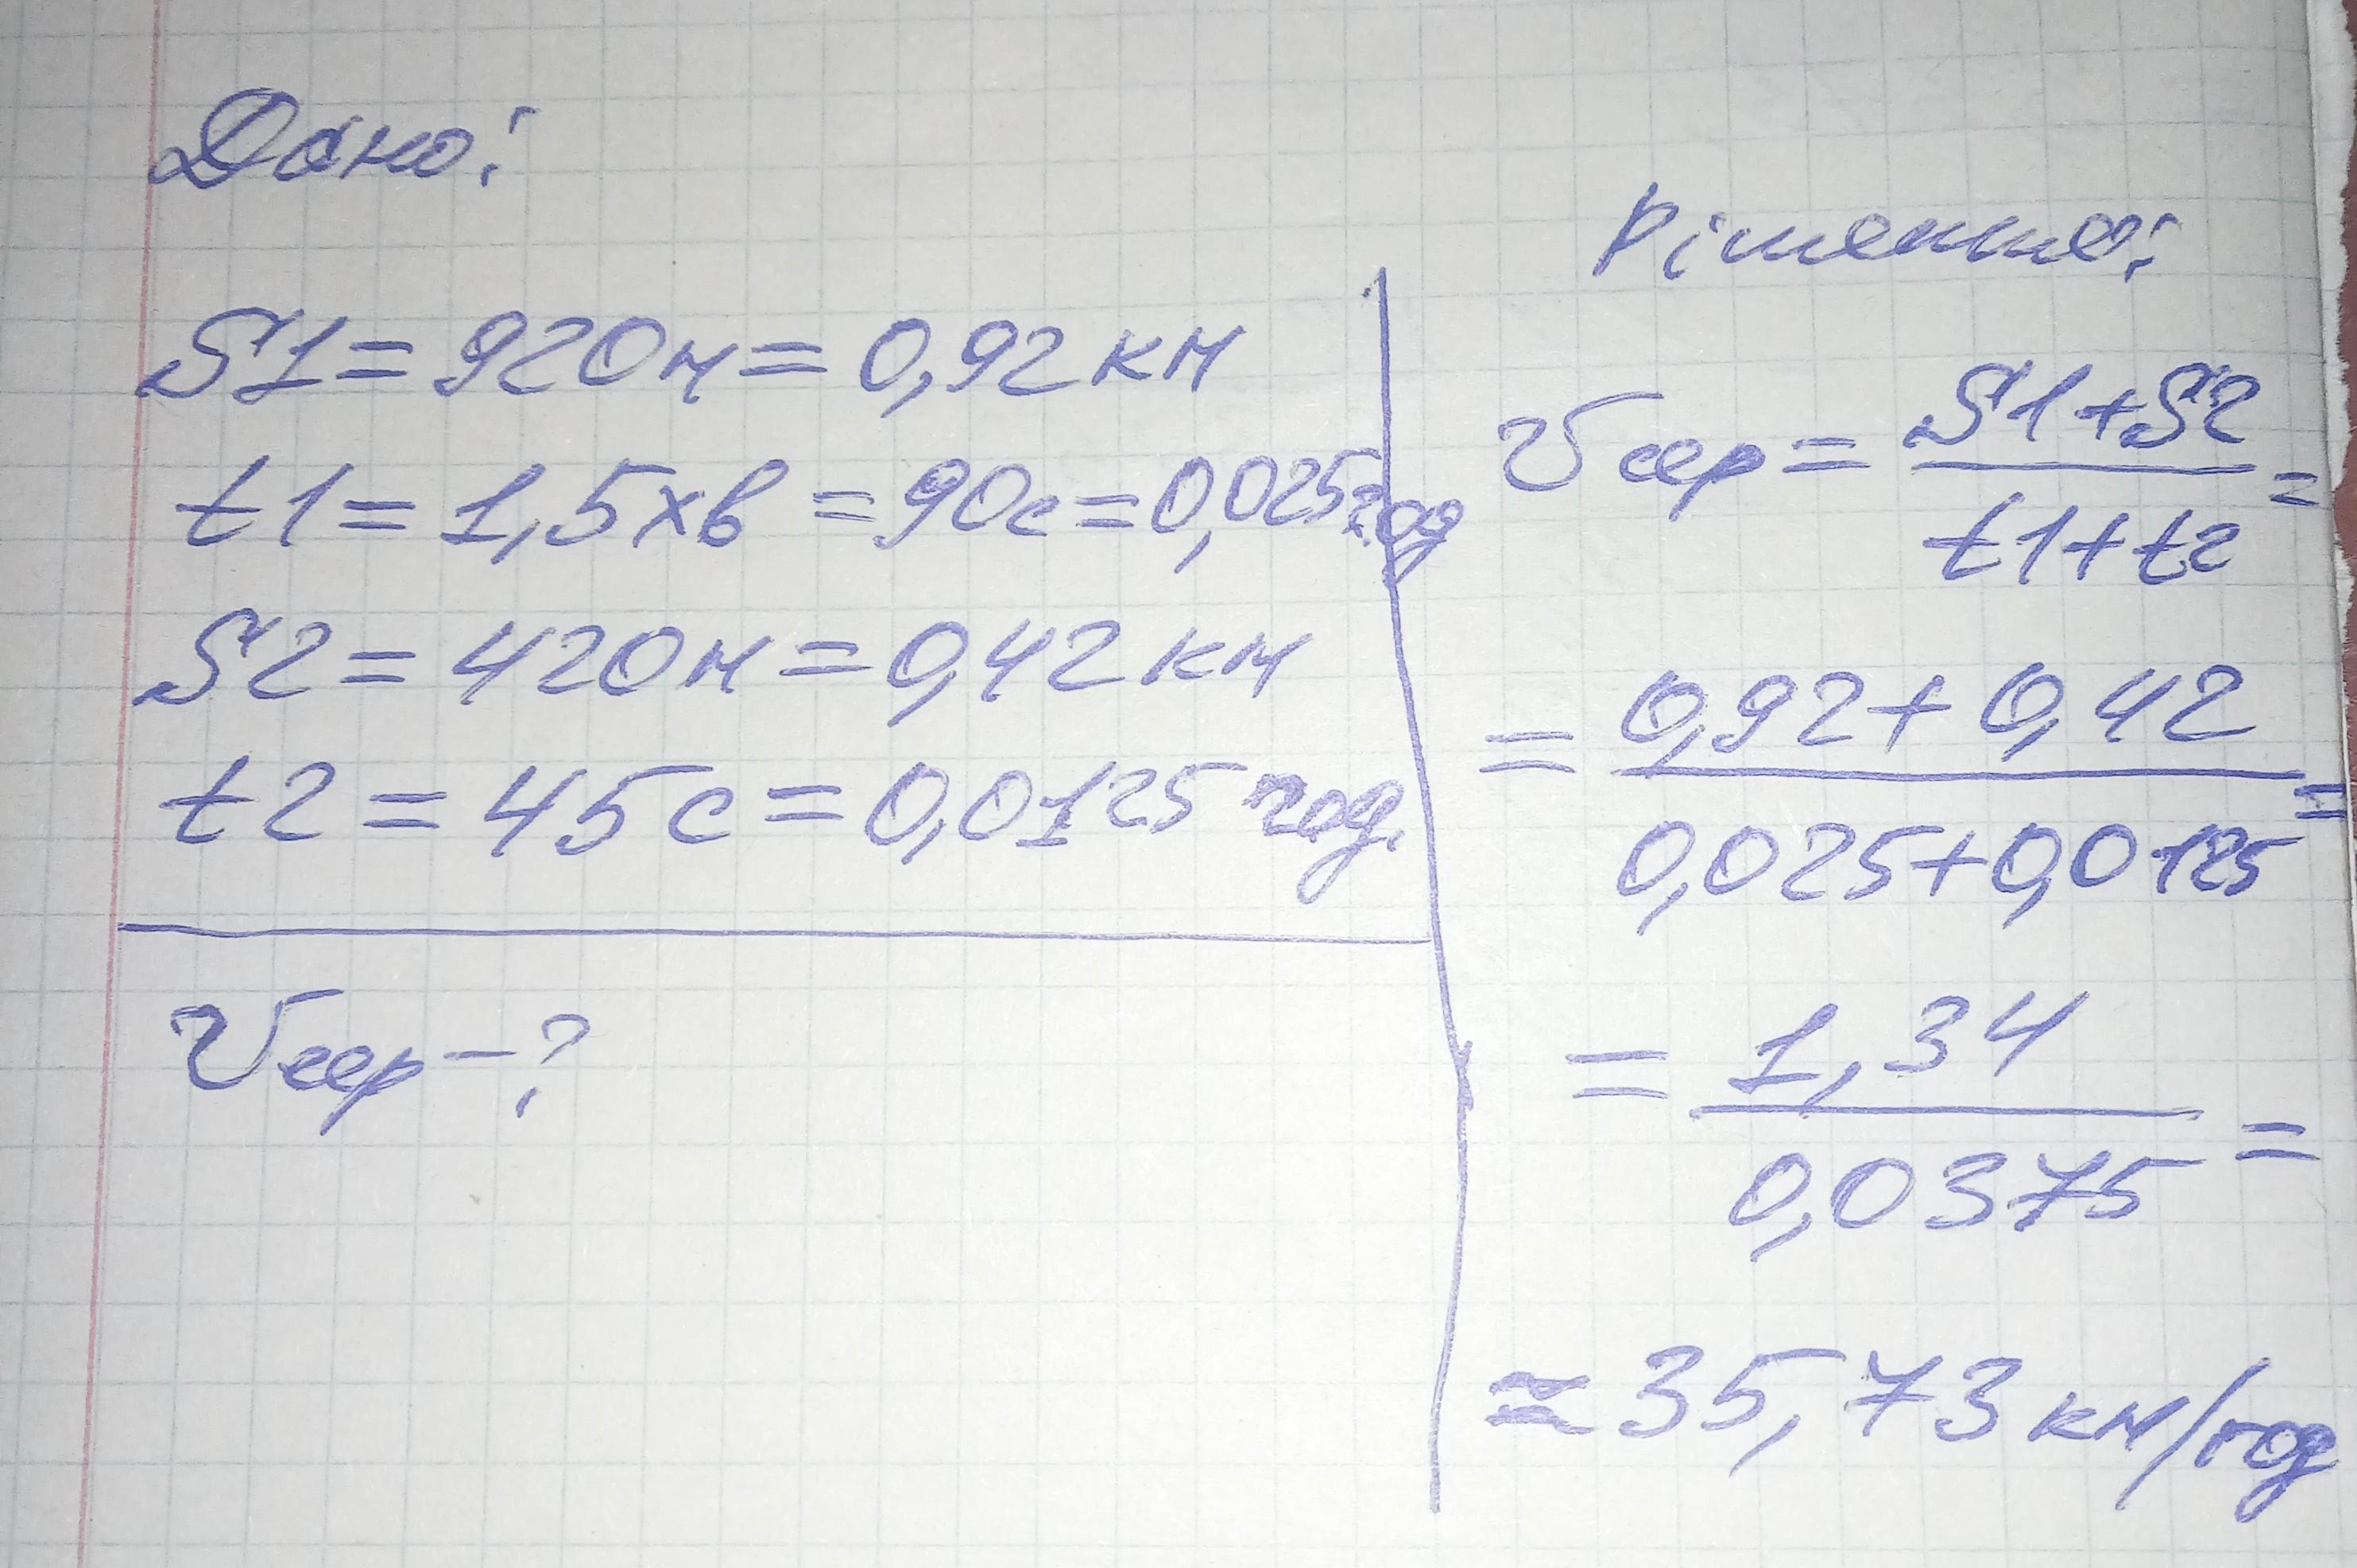 Дано:
S1 = 920м = 0,92 км
t1 = 1,5 хв = 90с = 0,025 год
S2 = 420м = 0,42 км
t2 = 45 с = 0,0125 год.
Vсер - ?
Рішення:
Vсер = S1+S2 =
t1+t2
= 0,92 + 0,42 =
0,025+0,0125
= 1,34 =
0,0375
≈ 35,73 км/год